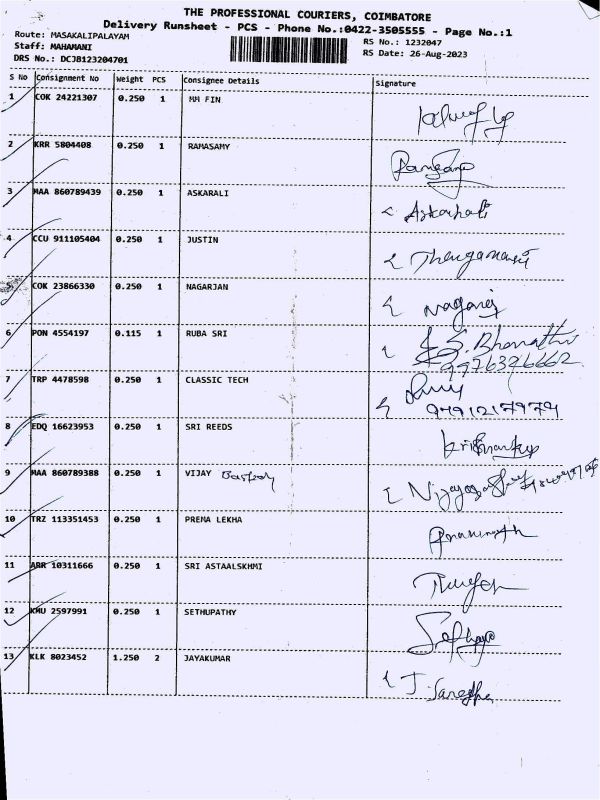 THE PROFESSIONAL COURIERS, COIMBATORE
Delivery Runsheet - PCS - Phone No.:0422-3505555 - Page No.:1
Route: MASAKALIPALAYAM
Staff: MAHAMANI
DRS No.: DCJB123204701
RS No.: 1232047
RS Date: 26-Aug-2023
S No Consignment No Weight PCS Consignee Details Signature
1 COK 24221307 0.250 1 MM FIN
2 KRR 5804408 0.250 1 RAMASAMY
3 MAA 860789439 0.250 1 ASKARALI Askarali
4 CCU 911105404 0.250 1 JUSTIN Thangamani
5 COK 23866330 0.250 1 NAGARJAN Nagaraj
6 PON 4554197 0.115 1 RUBA SRI S. Bharathi
9976396662
7 TRP 4478598 0.250 1 CLASSIC TECH
9791217979
8 EDQ 16623953 0.250 1 SRI REEDS
9 MAA 860789388 0.250 1 VIJAY
10 TRZ 113351453 0.250 1 PREMA LEKHA
11 ARR 10311666 0.250 1 SRI ASTAALSKHMI
12 KMU 2597991 0.250 1 SETHUPATHY
13 KLK 8023452 1.250 2 JAYAKUMAR